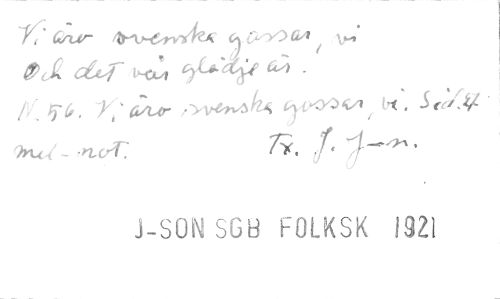 Vi äro svenska gossar, vi
Och det vår glädje är.
N. 56. Vi äro svenska gossar, vi. Sid.
mel-not. Tx. J. J-n.
J-SON SGB FOLKSK 1921